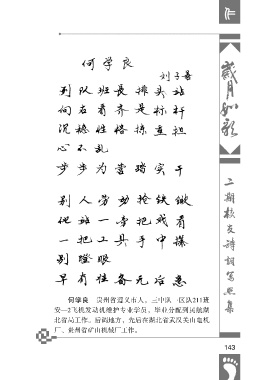 何学良
刘子善
列队班长排头站
向右看齐是标杆
沉稳性格练直担
心不乱
步步为营踏实干
别人劳动抢镐做
他姓一旁把戏看
一把工具手中攥
别瞪眼
早有准备无后患
何学良 贵州省遵义市人。三中队一区队211班
安—2飞机发动机维护专业学员。毕业分配到民航湖
北省局工作。后调地方，先后在湖北省武汉关山电机
厂、贵州省矿山机械厂工作。
岁月如歌
二期校友诗词写照集
143